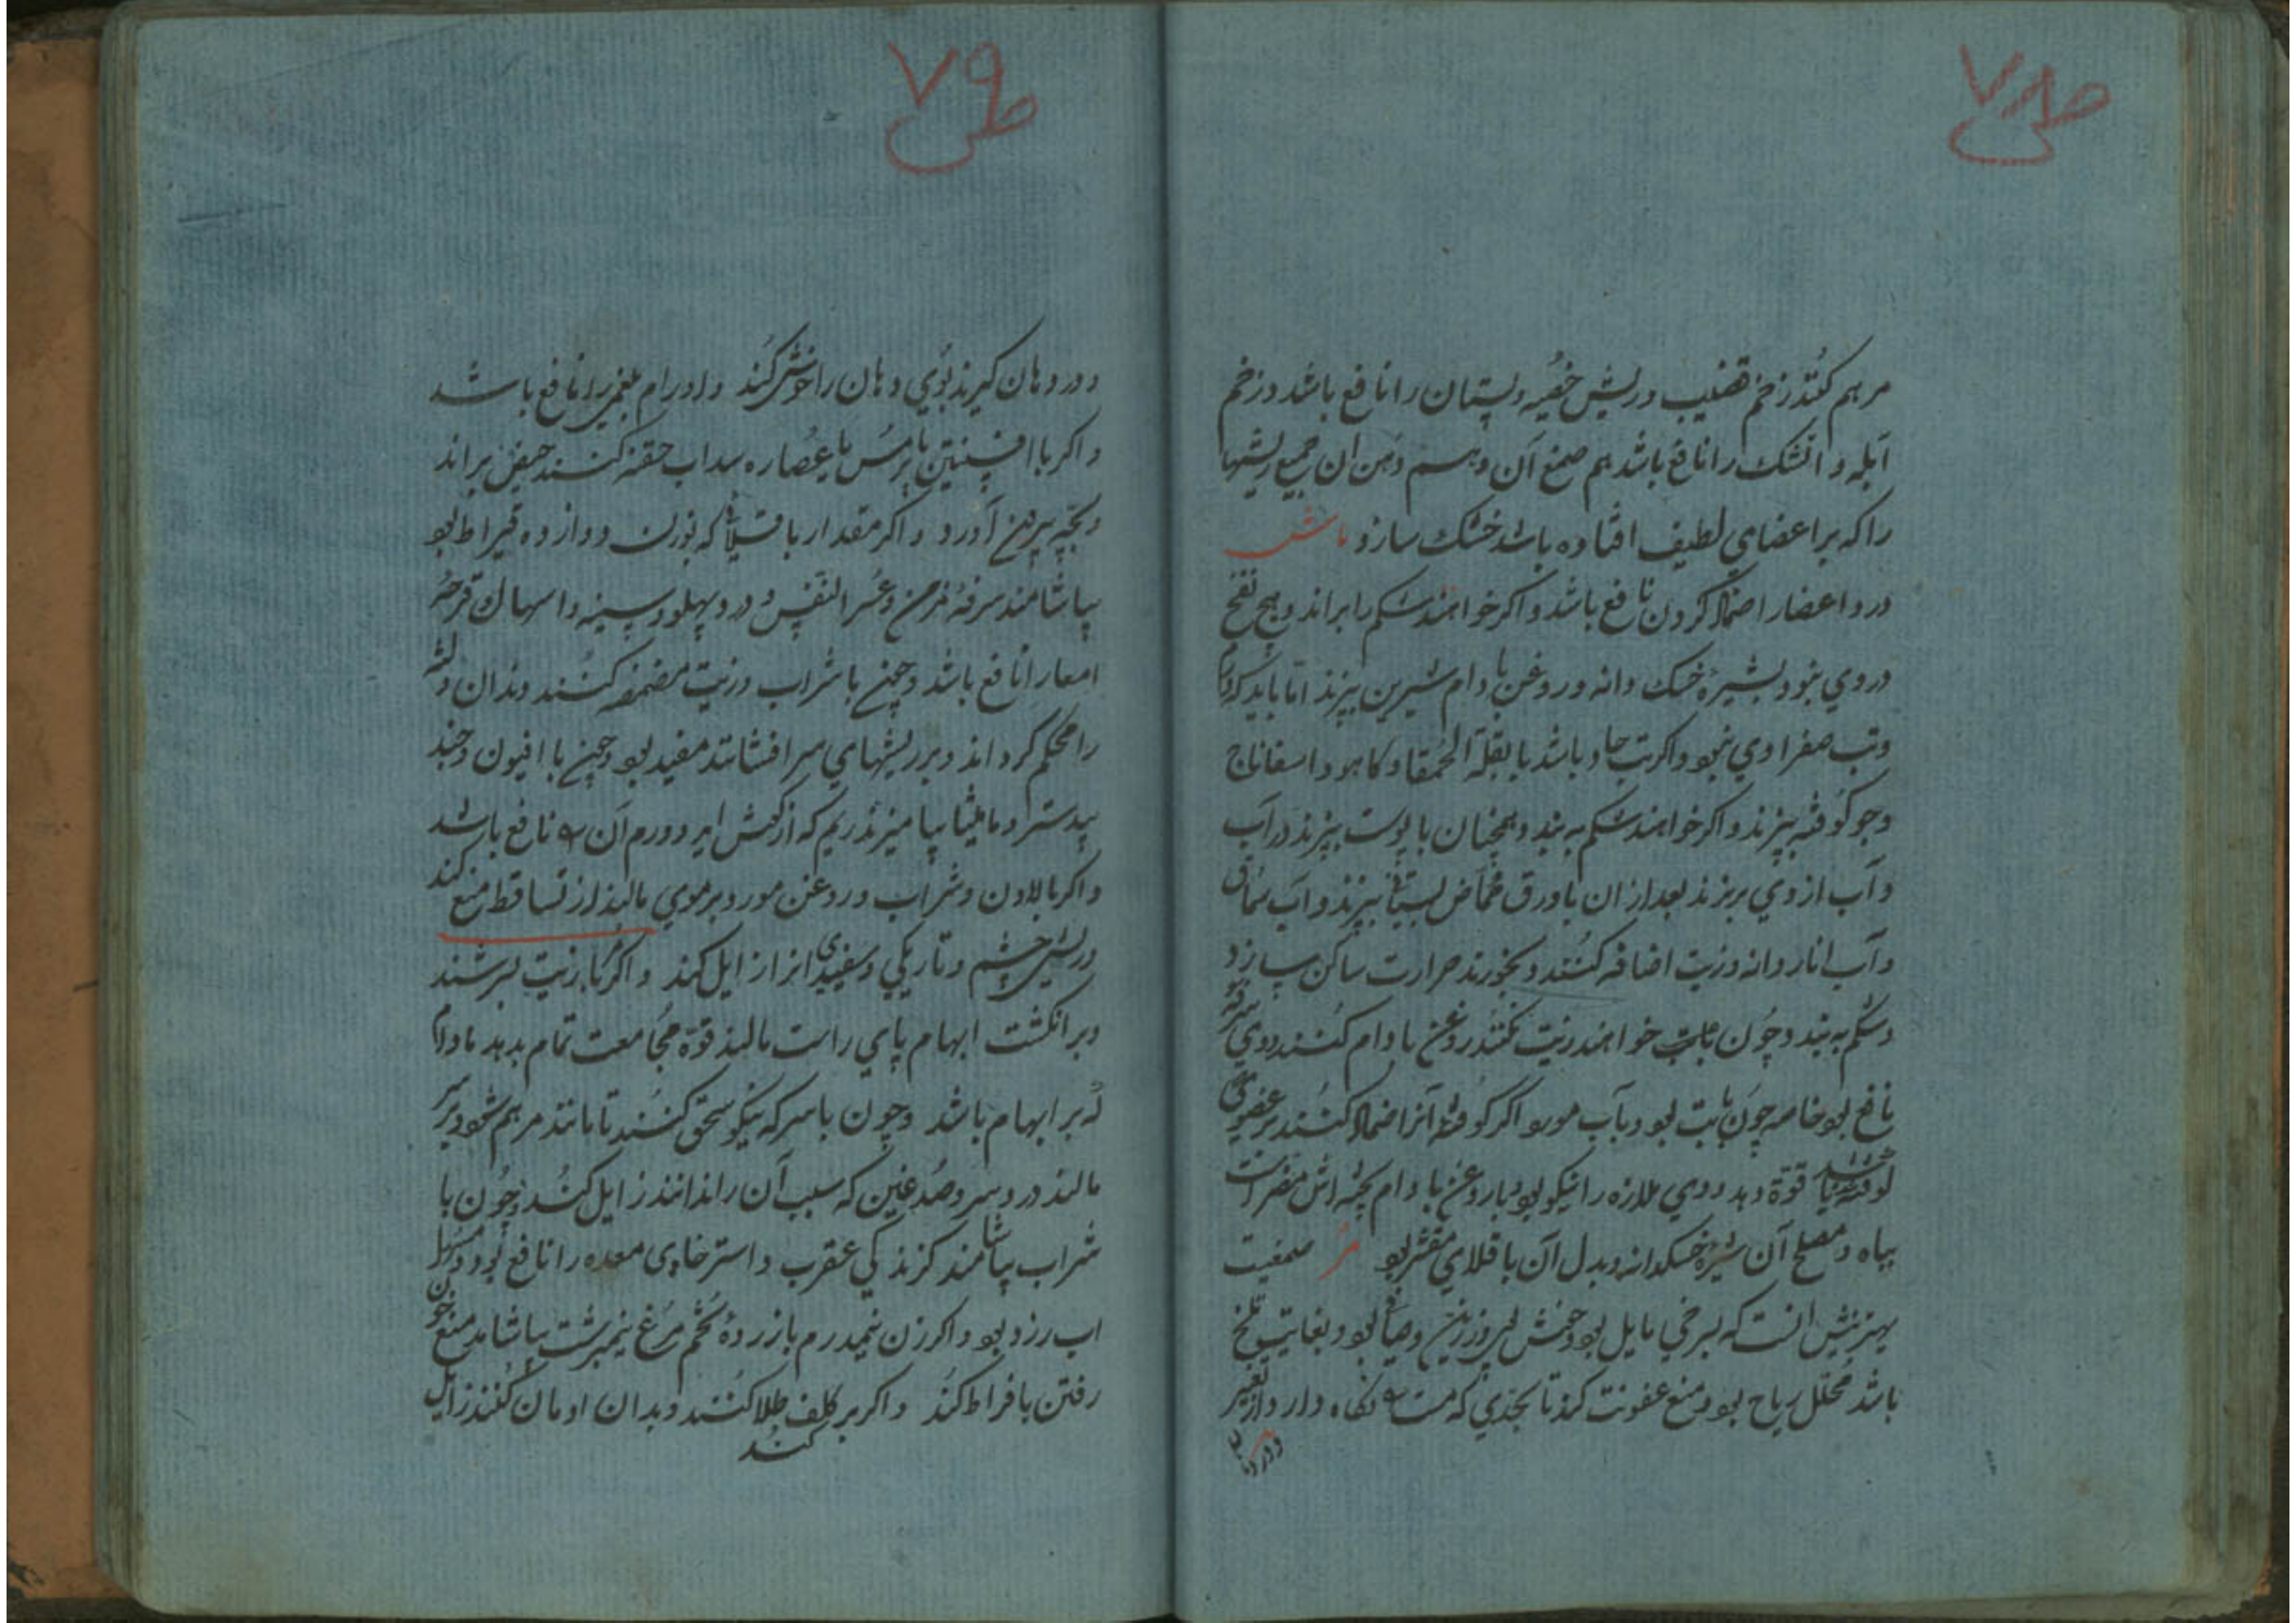 ص ٧٨
مرهم کنند زخم قضیب و ریش خصیه و پستان را نافع باشد و زخم
آبله و اتشک را نافع باشد هم صمغ آن و هم دهن ان جمیع ریشها
را که بر اعضای لطیف افتاده باشد خشک سازد ماش
درد اعضا را ضماد کردن نافع باشد و اکر خواهند شکم را براند و هیچ نفخ
در وی نبود بشیره خسک دانه و روغن بادام شیرین بپزند اما باید که
و تب صفراوی نبود و اکر تب حاد باشد با بقلة الحمقا و کاهو و اسفاناج
و جو کوفته بپزند و اکر خواهند شکم به بندد همچنان با پوست بپزند در آب
و آب از وی بریزند بعد از ان با ورق حماض بستانی بپزند و آب سماق
و آب انار دانه و زیت اضافه کنند و بخورند حرارت ساکن سازد
و شکم به بندد و چون خواهند زیت نکنند روغن بادام کنند و وی سرفه
نافع بود خاصه چون بود و بآب مورد اکر کوفته آنرا ضماد کنند بر عضوی که
کوفته شده باشد قوة دهد و وی ملازه را نیکو بود و با روغن بادام پخته اش مضر است
بباه و مصلح آن شیره خسکدانه و بدل آن باقلای مقشر بود مر صمغیست
بهترینش انست که بسرخی مایل بود و بغایت تلخ
باشد محلل ریاح بود و منع عفونت کند تا بحدی که میت را نکاه دارد از تغیر
و در دهان
ص ٧٩
و در دهان کیرند بوی دهان را خوش کند و اورام بلغمی را نافع باشد
و اکر با افسنتین یا ترمس یا عصاره سداب حقنه کنند حیض براند
و بچه بیرون آورد و اکر مقدار باقلا که بوزن دوازده قیراط بود
بیاشامند سرفه مزمن و عسر النفس و درد پهلو و سینه و اسهال و قرحه
امعا را نافع باشد و چون با شراب و زیت مضمضه کنند دندان و لثه
را محکم کرداند و بر ریشهای سر افشانند مفید بود و چون با افیون و جند
بیدستر و مامیثا بیامیزند ریم که از کوش اید و ورم آن را نافع باشد
و اکر با لادن و شراب و روغن مورد بر موی مالیند از تساقط منع کند
و ریش چشم و تاریکی و سفیدی انرا زایل کند و اکر با زیت بسرشند
و بر انکشت ابهام پای راست مالند قوة مجامعت تمام بدهد مادام
که بر ابهام باشد و چون با سرکه نیکو سحق کنند تا مانند مرهم شود و بر سر
مالند درد سر و صدغین که سبب آن را ندانند زایل کند و چون با
شراب بیاشامند کزندکی عقرب و استرخای معده را نافع بود و مسهل
اب زرد بود و اکر زن نیمدرم با زرده تخم مرغ نیمبرشت بیاشامد منع خون
رفتن بافراط کند و اکر بر کلف طلا کنند و بدان ادمان کنند زایل
کند